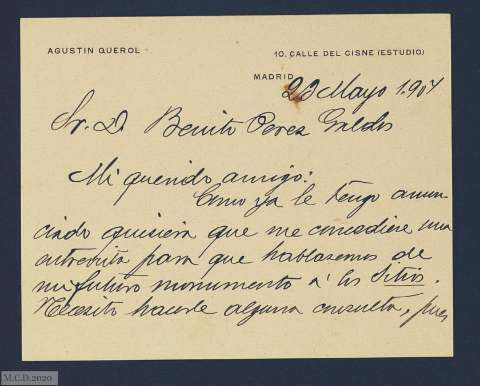 AGUSTIN QUEROL
10. CALLE DEL CISNE (ESTUDIO)
MADRID 23 Mayo 1.904
Sr. D. Benito Perez Galdos
Mi querido amigo:
Como ya le tengo anun-
ciado quisiera que me concediese una
entrevista para que hablasemos de
mi futuro monumento á los Sitios.
Necesito hacerle alguna consulta, pues
M.C.D.2020